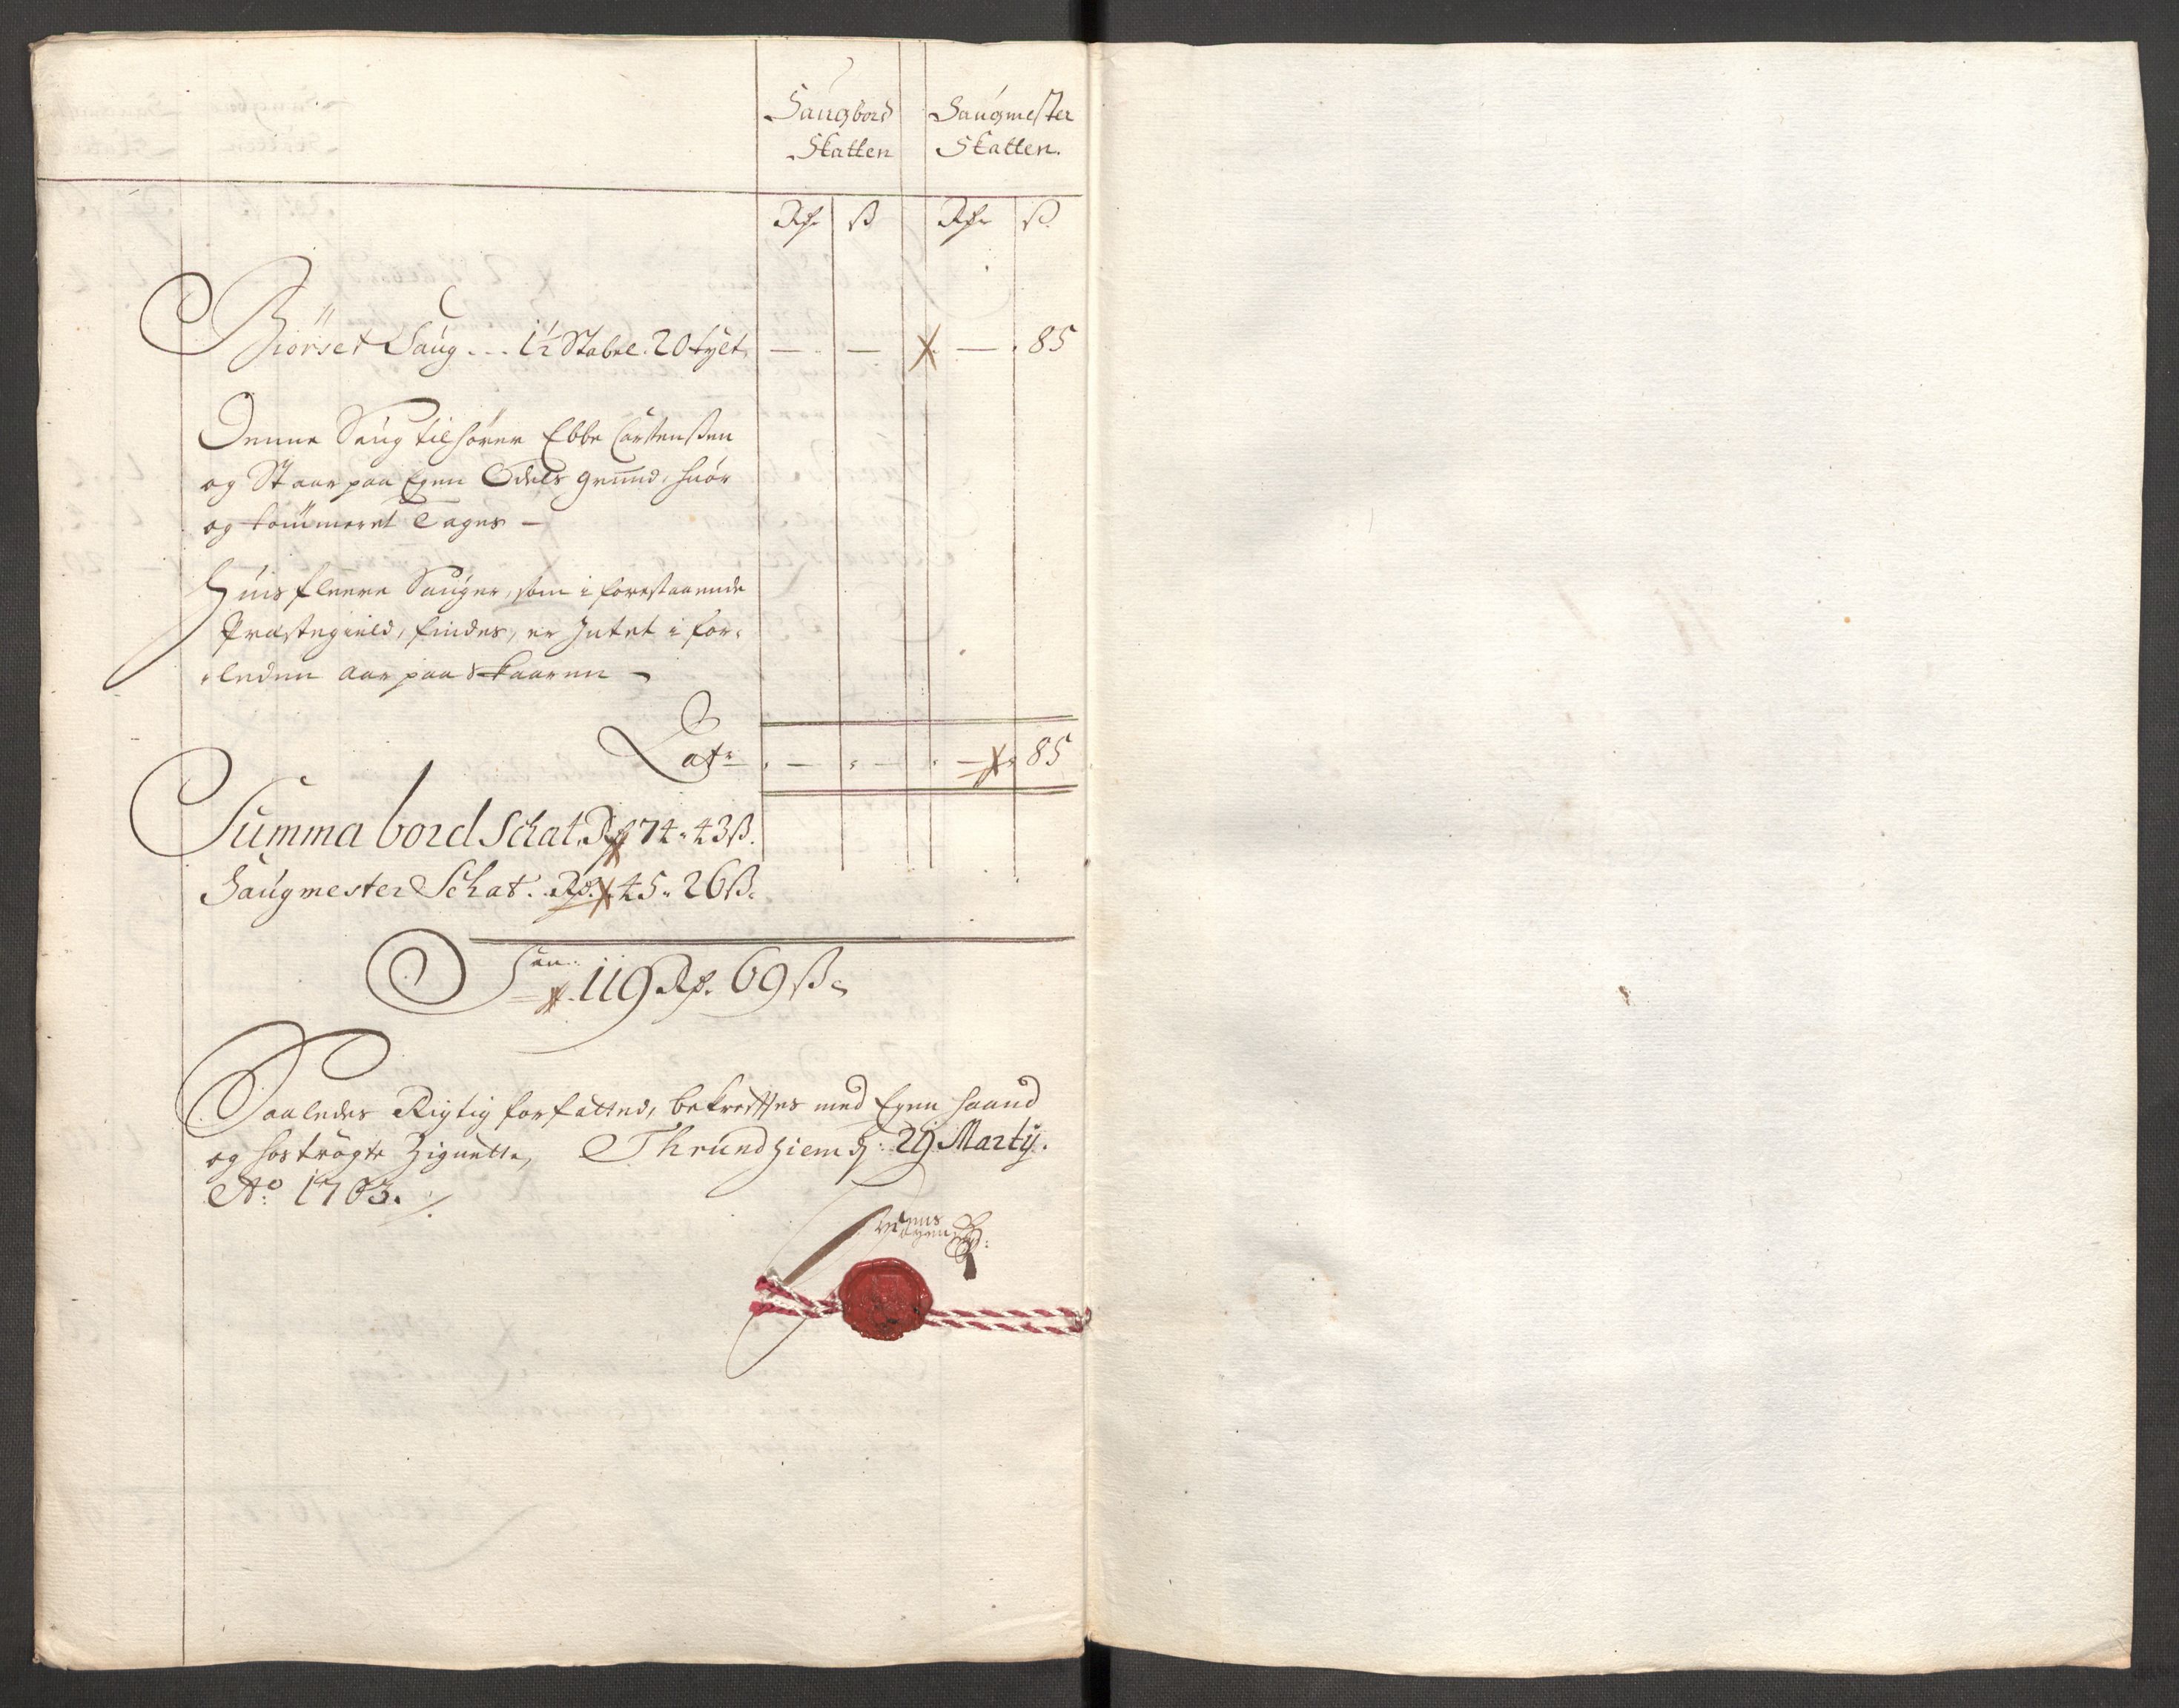 Saugbord Saugmester
Skatten Skatten.
Rd. ß Rd. ß
Biörset Saug... 1½ Stabel. 20 tylt. — — — 85
Denne Saug tilhörer Ebbe Carstensßen
og Staar paa Egen Odels grund, huor
og tömmeret Tages —
Huis fleere Sauger, som i forestaaende
Præstegield, findes, er Intet i for-
leden aar paa skaaren —
Lat: — — — 85
Summa bord Schat. Rd 74. 43 ß.
Saugmester Schat. Rd. 45. 26 ß.
Sum: 119 Rd. 69 ß.
Saaledes Rigtig forfatted, bekræfftes med Egen haand
og hoströgte Zignette, Thrundhiem d: 29 Martij.
Ao. 1703.